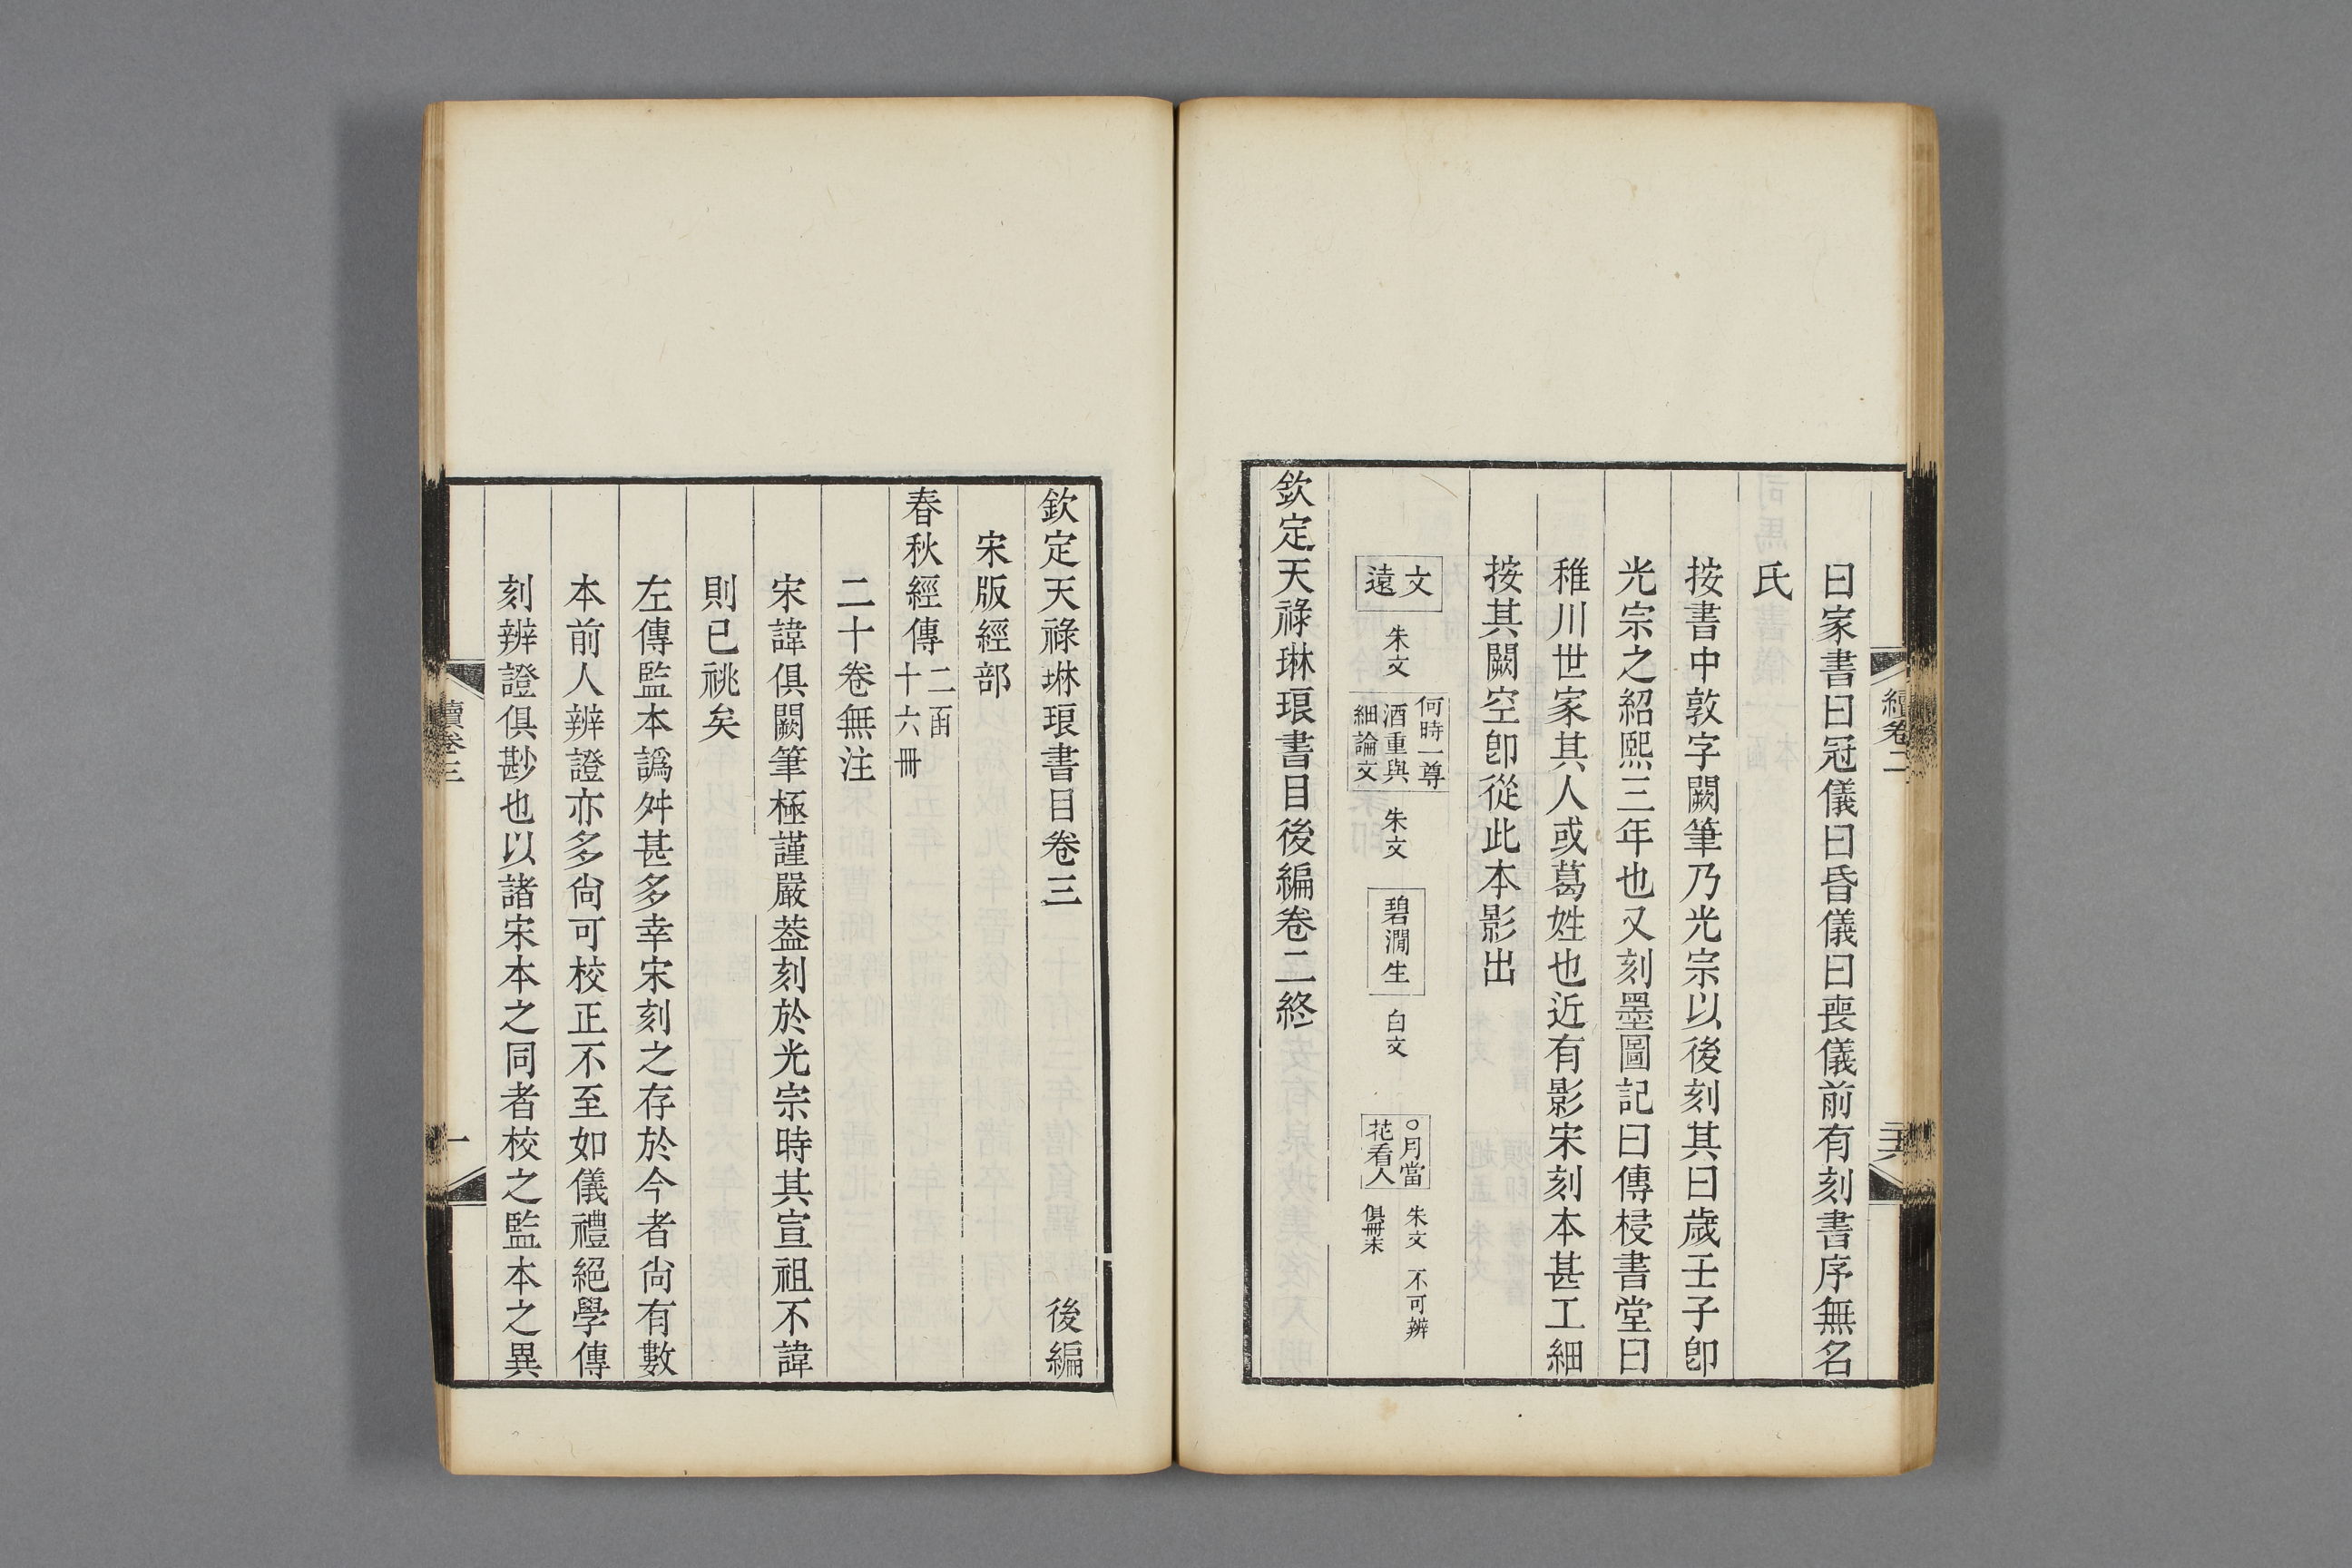 續卷二
二六
曰家書曰冠儀曰昏儀曰喪儀前有刻書序無名
氏
按書中敦字闕筆乃光宗以後刻其曰歲壬子卽
光宗之紹熙三年也又刻墨圖記曰傳梫書堂曰
稚川世家其人或葛姓也近有影宋刻本甚工細
按其闕空卽從此本影出
文
遠
朱文
何時一尊
酒重與
細論文
朱文
碧澗生
白文
○月當
花看人
朱文 不可辨
俱冊末
欽定天祿琳琅書目後編卷二終
欽定天祿琳琅書目卷三 後編
宋版經部
春秋經傳二函
十六冊
二十卷無注
宋諱俱闕筆極謹嚴葢刻於光宗時其宣祖不諱
則已祧矣
左傳監本譌舛甚多幸宋刻之存於今者尙有數
本前人辨證亦多尙可校正不至如儀禮絕學傳
刻辨證俱尠也以諸宋本之同者校之監本之異
續卷三
一